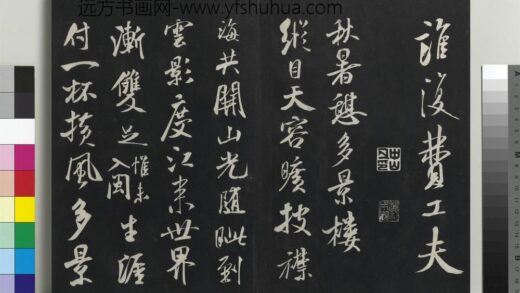 远方书画网-www.yfshuhua.com
誰復費工夫
秋暑憩多景樓
縱目天容曠披襟
海共開山光隨眺到
雲影度江來世界
漸雙足惟未入閩生涯
付一杯橫風多景